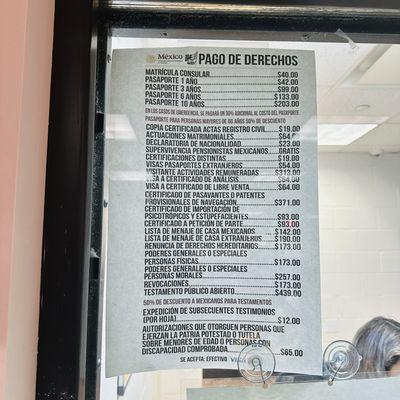 México
PAGO DE DERECHOS
MATRÍCULA CONSULAR $40.00
PASAPORTE 1 AÑO $42.00
PASAPORTE 3 AÑOS $99.00
PASAPORTE 6 AÑOS $133.00
PASAPORTE 10 AÑOS $203.00
EN LOS CASOS DE EMERGENCIA, SE PAGARÁ UN 30% ADICIONAL AL COSTO DEL PASAPORTE
PASAPORTE PARA PERSONAS MAYORES DE 60 AÑOS 50% DE DESCUENTO
COPIA CERTIFICADA ACTAS REGISTRO CIVIL $19.00
ACTUACIONES MATRIMONIALES $64.00
DECLARATORIA DE NACIONALIDAD $23.00
SUPERVIVENCIA PENSIONISTAS MEXICANOS GRATIS
CERTIFICACIONES DISTINTAS $19.00
VISAS PASAPORTES EXTRANJEROS $54.00
VISITANTE ACTIVIDADES REMUNERADAS $313.00
VISA A CERTIFICADO DE ANÁLISIS $64.00
VISA A CERTIFICADO DE LIBRE VENTA $64.00
CERTIFICADO DE PASAVANTES O PATENTES
PROVISIONALES DE NAVEGACIÓN $371.00
CERTIFICADO DE IMPORTACIÓN DE
PSICOTRÓPICOS Y ESTUPEFACIENTES $93.00
CERTIFICADO A PETICIÓN DE PARTE $93.00
LISTA DE MENAJE DE CASA MEXICANOS $142.00
LISTA DE MENAJE DE CASA EXTRANJEROS $190.00
RENUNCIA DE DERECHOS HEREDITARIOS $173.00
PODERES GENERALES O ESPECIALES
PERSONAS FÍSICAS $173.00
PODERES GENERALES O ESPECIALES
PERSONAS MORALES $257.00
REVOCACIONES $173.00
TESTAMENTO PÚBLICO ABIERTO $439.00
50% DE DESCUENTO A MEXICANOS PARA TESTAMENTOS
EXPEDICIÓN DE SUBSECUENTES TESTIMONIOS
(POR HOJA) $12.00
AUTORIZACIONES QUE OTORGUEN PERSONAS QUE
EJERZAN LA PATRIA POTESTAD O TUTELA
SOBRE MENORES DE EDAD O PERSONAS CON
DISCAPACIDAD COMPROBADA $65.00
SE ACEPTA: EFECTIVO VISA